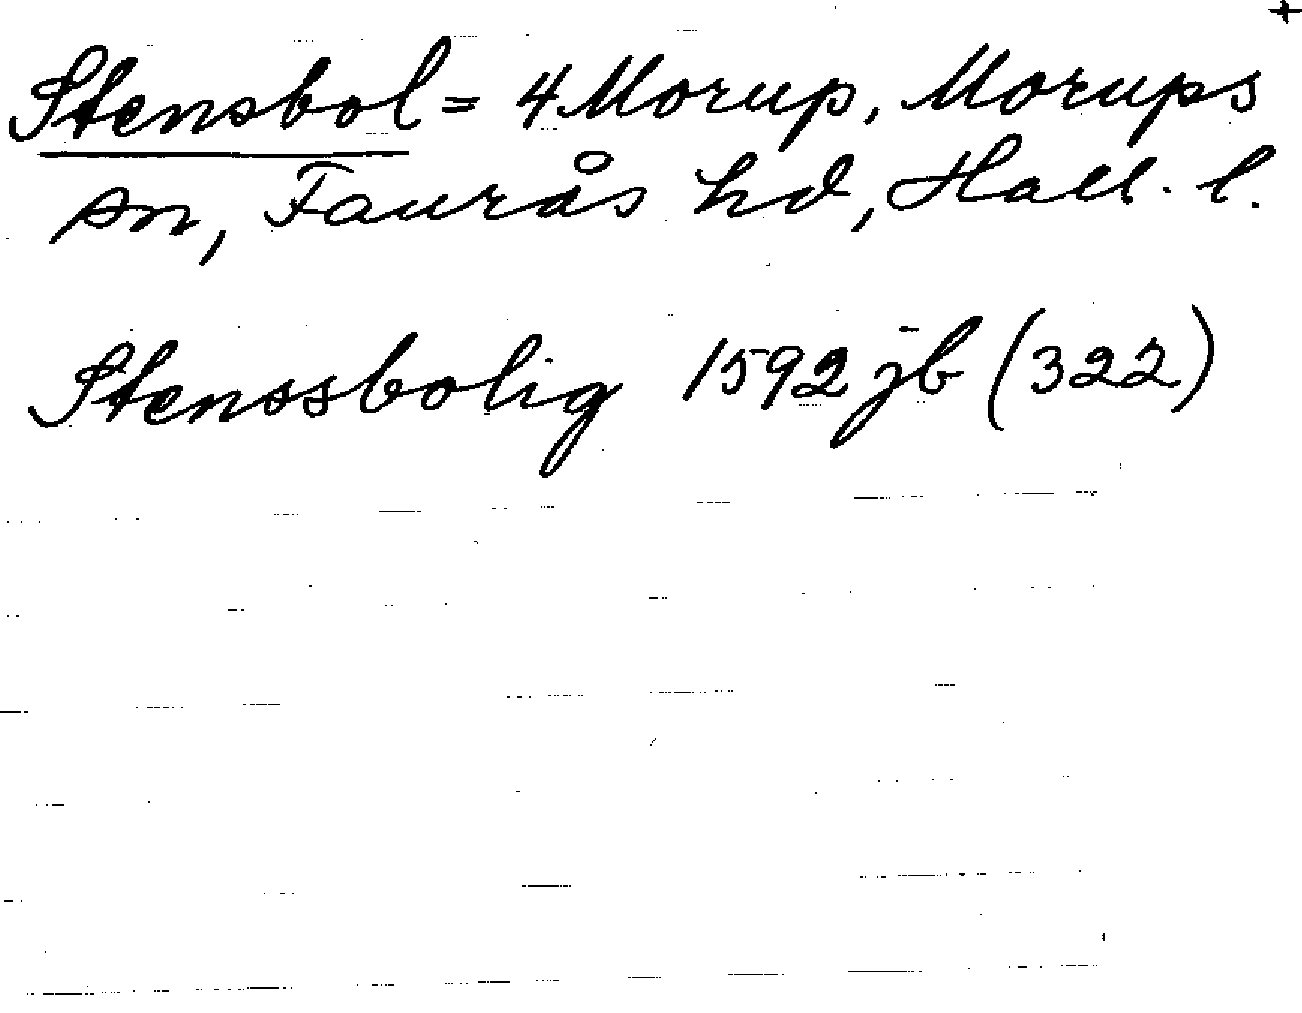 +
Stensbol = 4 Morup, Morups
sn, Faurås hd, Hall. l.
Stenssbolig 1592 jb (322)